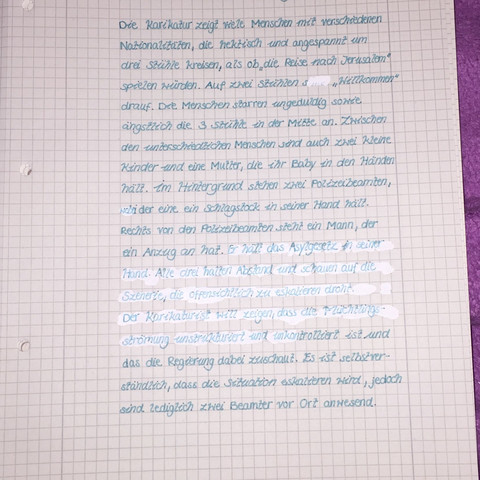 Die Karikatur zeigt viele Menschen mit verschiedenen
Nationalitäten, die hektisch und angespannt um
drei Stühle kreisen, als ob „die Reise nach Jerusalem"
spielen würden. Auf zwei Stühlen s „Willkommen"
drauf. Die Menschen starren ungeduldig sowie
ängstlich die 3 Stühle in der Mitte an. Zwischen
den unterschiedlichen Menschen sind auch zwei kleine
Kinder und eine Mutter, die ihr Baby in den Händen
hält. Im Hintergrund stehen zwei Polizeibeamten,
der eine ein Schlagstock in seiner Hand hält.
Rechts von den Polizeibeamten steht ein Mann, der
ein Anzug an hat. Er hält das Asylgesetz in seiner
Hand. Alle drei halten Abstand und schauen auf die
Szenerie, die offensichtlich zu eskalieren droht.
Der Karikaturist will zeigen, dass die Flüchtlings-
strömung unstrukturiert und unkontrolliert ist und
das die Regierung dabei zuschaut. Es ist selbstver-
ständlich, dass die Situation eskalieren wird, jedoch
sind lediglich zwei Beamter vor Ort anwesend.